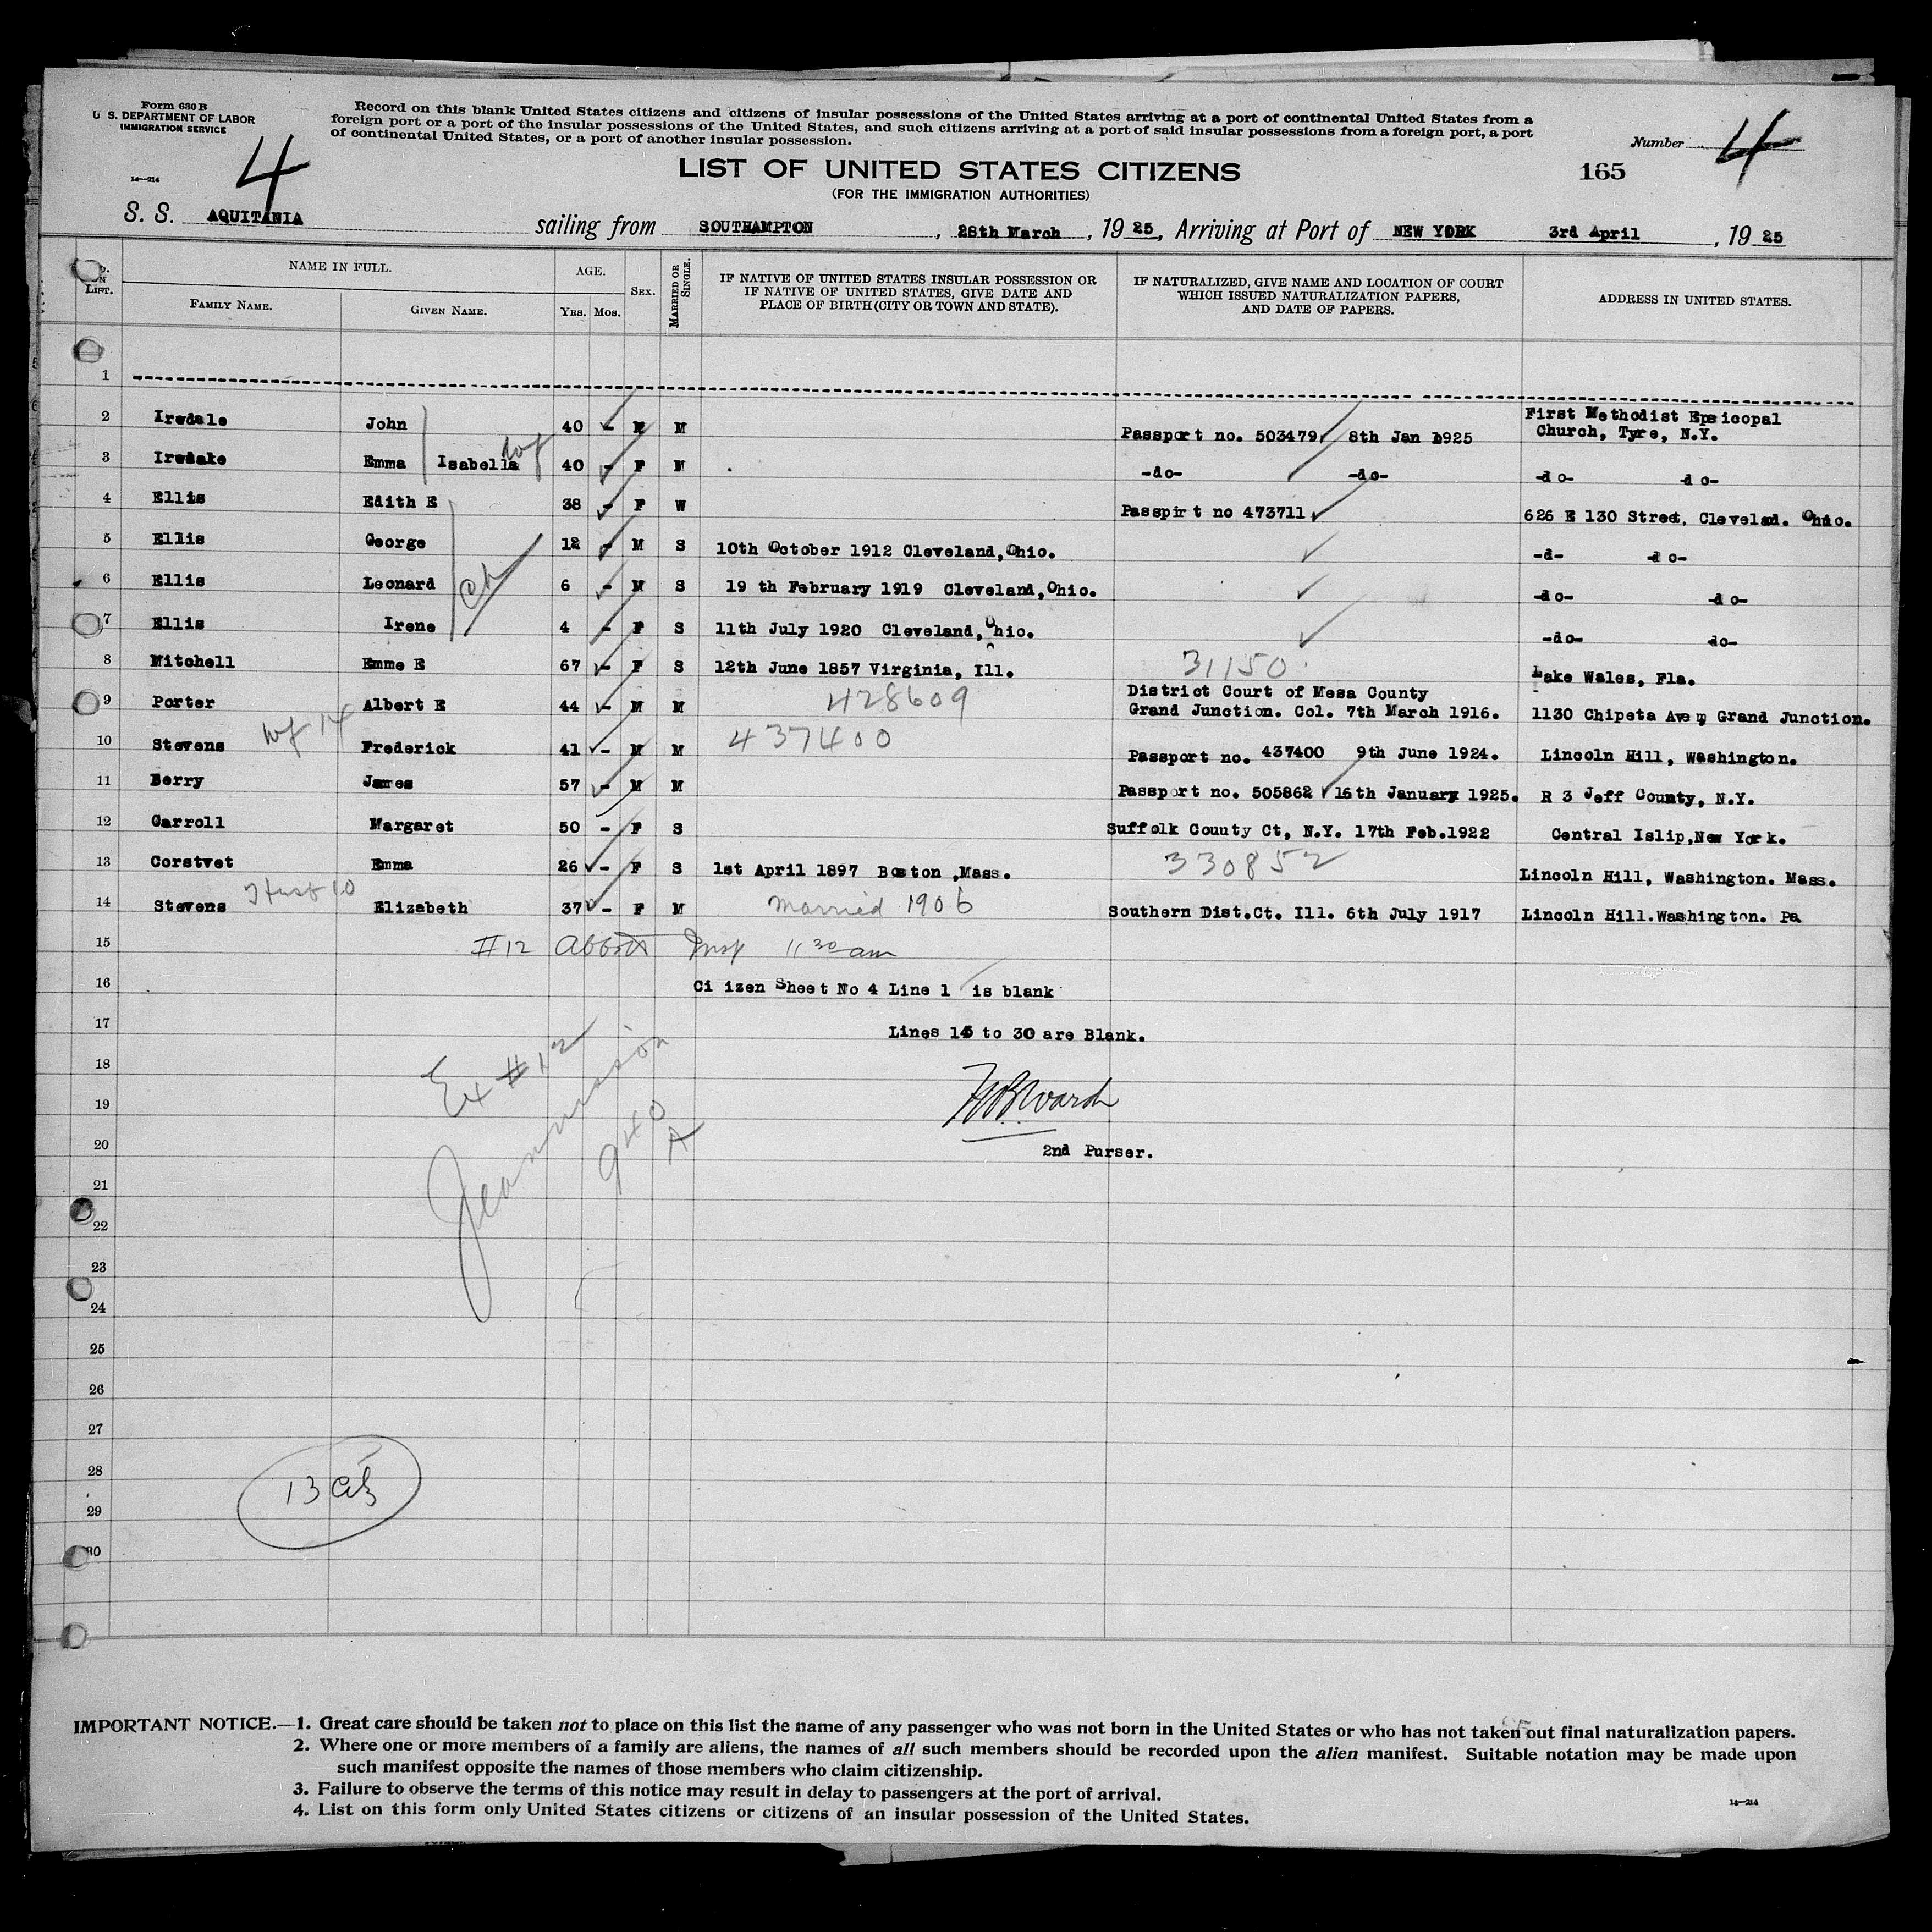 Form 630 B
U S. DEPARTMENT OF LABOR
IMMIGRATION SERVICE
14—214
4
Record on this blank United States citizens and citizens of insular possessions of the United States arriving at a port of continental United States from a
foreign port or a port of the insular possessions of the United States, and such citizens arriving at a port of said insular possessions from a foreign port, a port
of continental United States, or a port of another insular possession.
Number 4
LIST OF UNITED STATES CITIZENS
165
(FOR THE IMMIGRATION AUTHORITIES)
S. S. AQUITANIA sailing from SOUTHAMPTON, 28th March, 1925, Arriving at Port of NEW YORK 3rd April, 1925
LIST.
NAME IN FULL.
FAMILY NAME. GIVEN NAME.
AGE.
YRS. MOS.
SEX.
MARRIED OR SINGLE.
IF NATIVE OF UNITED STATES INSULAR POSSESSION OR
IF NATIVE OF UNITED STATES, GIVE DATE AND
PLACE OF BIRTH (CITY OR TOWN AND STATE).
IF NATURALIZED, GIVE NAME AND LOCATION OF COURT
WHICH ISSUED NATURALIZATION PAPERS,
AND DATE OF PAPERS.
ADDRESS IN UNITED STATES.
1
2 Iredale John 40 - M M Passport no. 503479 8th Jan 1925 First Methodist Epsicopal
Church, Tyre, N.Y.
3 Emma Isabella wf 40 - F M -do- -do- -do- -do-
4 Ellis Edith E 38 - F W Passpirt no 473711 626 E 130 Street, Cleveland. Ohio.
5 Ellis George 12 - M S 10th October 1912 Cleveland, Ohio. -d- -do-
6 Ellis Leonard ch 6 - M S 19 th February 1919 Cleveland, Ohio. -do- -do-
7 Ellis Irene 4 - F S 11th July 1920 Cleveland, Ohio. -do- do-
8 Mitchell Emme E 67 - F S 12th June 1857 Virginia, Ill. 31150 Lake Wales, Fla.
9 Porter Albert E 44 - M M 428609 District Court of Mesa County
Grand Junction. Col. 7th March 1916. 1130 Chipeta Ave Grand Junction.
10 Stevens wf 14 Frederick 41 - M M 437400 Passport no. 437400 9th June 1924. Lincoln Hill, Washington.
11 Berry James 57 - M M Passport no. 505862 16th January 1925. R 3 Jeff County, N.Y.
12 Carroll Margaret 50 - F S Suffolk County Ct, N.Y. 17th Feb.1922 Central Islip,New York.
13 Corstvet Emma 26 - F S 1st April 1897 Boston ,Mass. 330852 Lincoln Hill, Washington. Mass.
14 Stevens Husb 10 Elizabeth 37 - F M Married 1906 Southern Dist.Ct. Ill. 6th July 1917 Lincoln Hill.Washington. Pa
15 #12 Insp 11 30 am
16 Ci izen Sheet No 4 Line 1 is blank
17 Lines 15 to 30 are Blank.
18 Ex #12
19
20 2nd Purser.
940 A
21
22
23
24
25
26
27
28
13
29
30
IMPORTANT NOTICE.—1. Great care should be taken not to place on this list the name of any passenger who was not born in the United States or who has not taken out final naturalization papers.
2. Where one or more members of a family are aliens, the names of all such members should be recorded upon the alien manifest. Suitable notation may be made upon
such manifest opposite the names of those members who claim citizenship.
3. Failure to observe the terms of this notice may result in delay to passengers at the port of arrival.
4. List on this form only United States citizens or citizens of an insular possession of the United States.
14—214